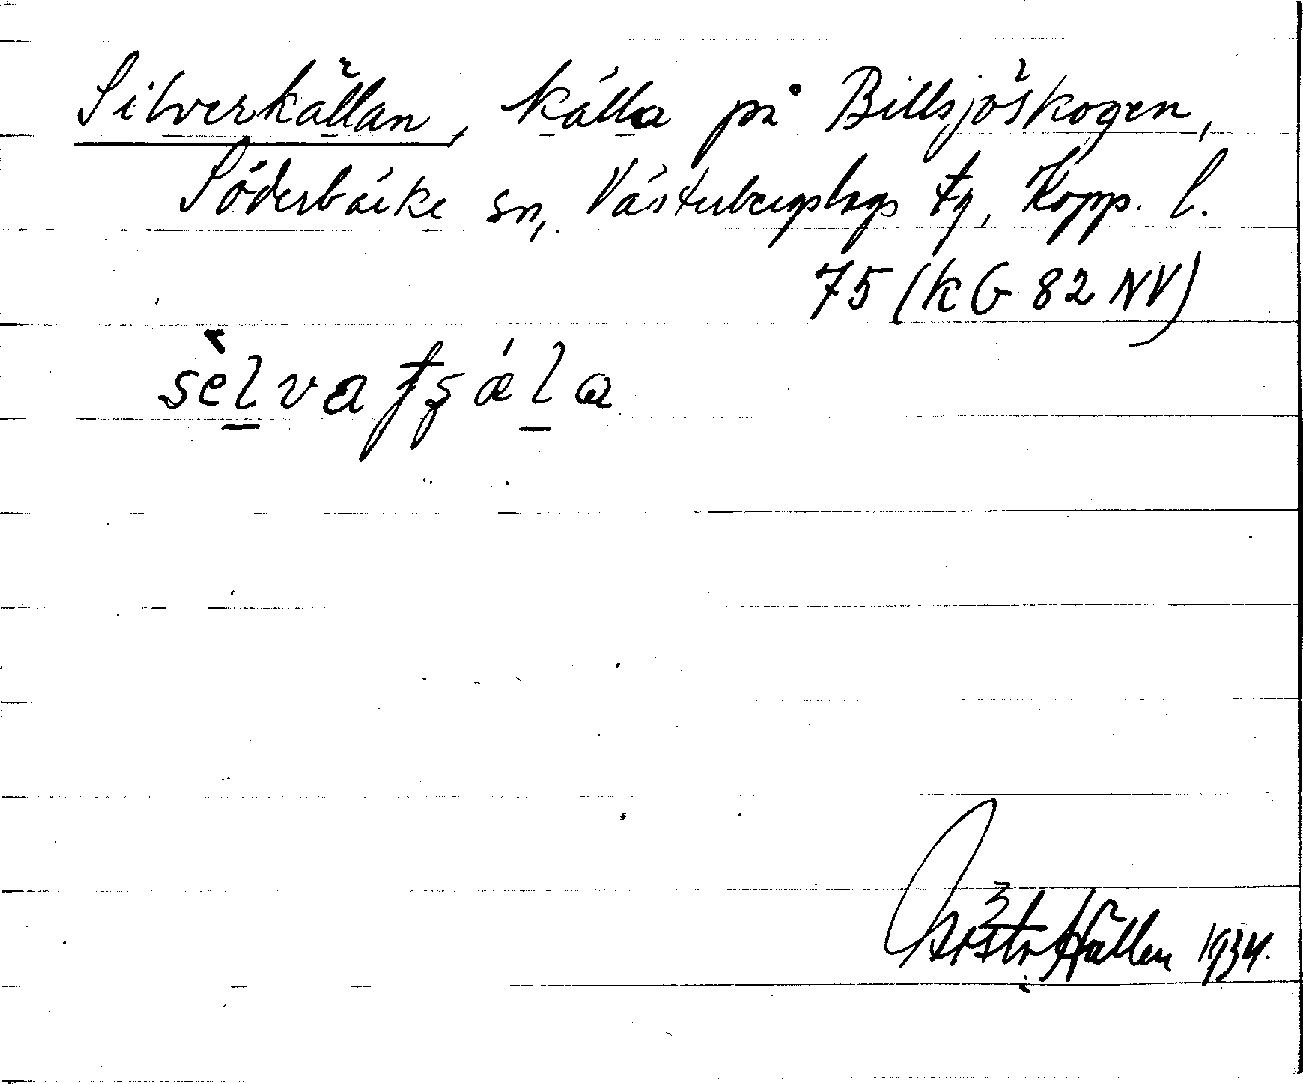 Silverkällan, källa på Billsjöskogen,
Söderbärke sn, Västerbergslags tg, Kopp. l.
75 (KG 82 NV)
sèlvatʂála
Gösta Hållen 1934.